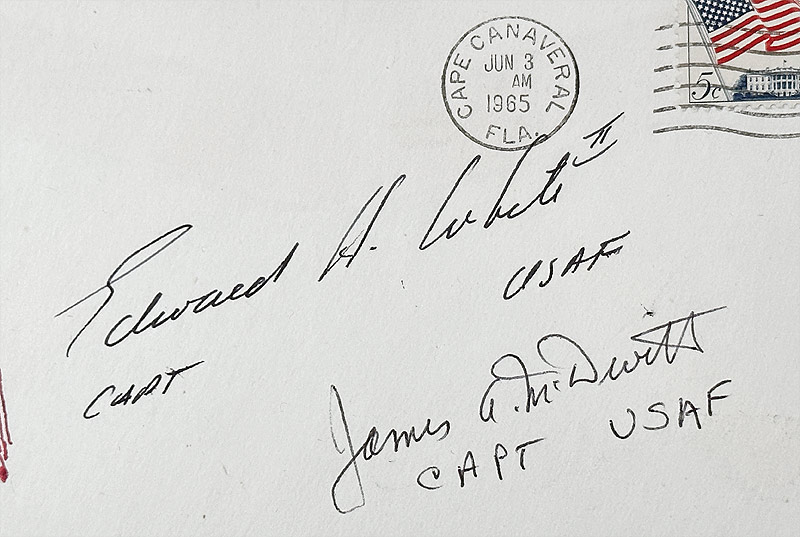 CAPE CANAVERAL
JUN 3
AM
1965
FLA.
5c
Edward H. White II
CAPT USAF
James A. McDivitt
CAPT USAF